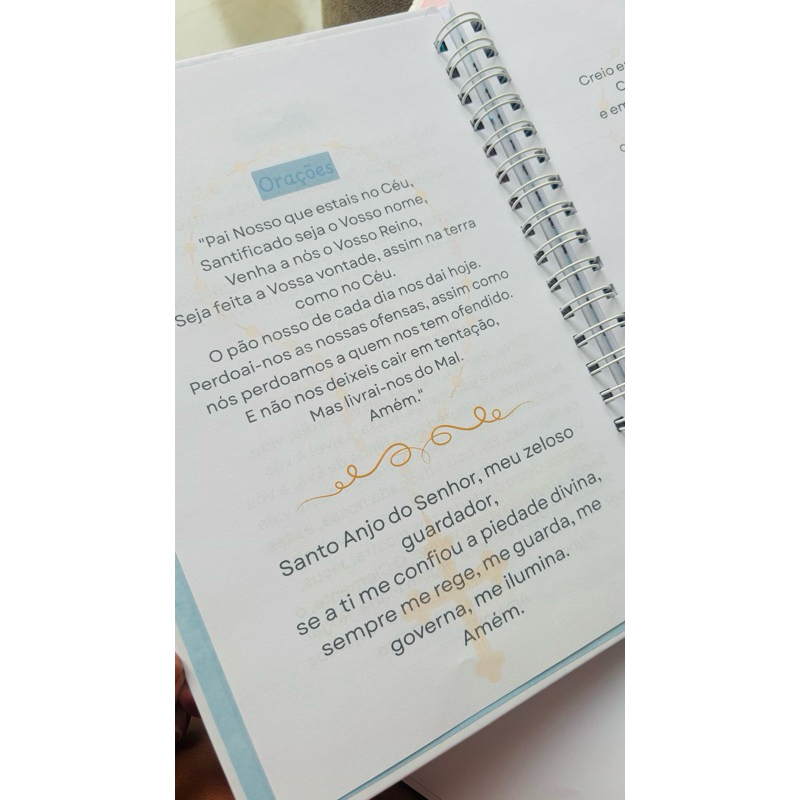 Orações
"Pai Nosso que estais no Céu,
Santificado seja o Vosso nome,
Venha a nós o Vosso Reino,
Seja feita a Vossa vontade, assim na terra
como no Céu.
O pão nosso de cada dia nos dai hoje.
Perdoai-nos as nossas ofensas, assim como
nós perdoamos a quem nos tem ofendido.
E não nos deixeis cair em tentação,
Mas livrai-nos do Mal.
Amém."
Santo Anjo do Senhor, meu zeloso
guardador,
se a ti me confiou a piedade divina,
sempre me rege, me guarda, me
governa, me ilumina.
Amém.
Creio